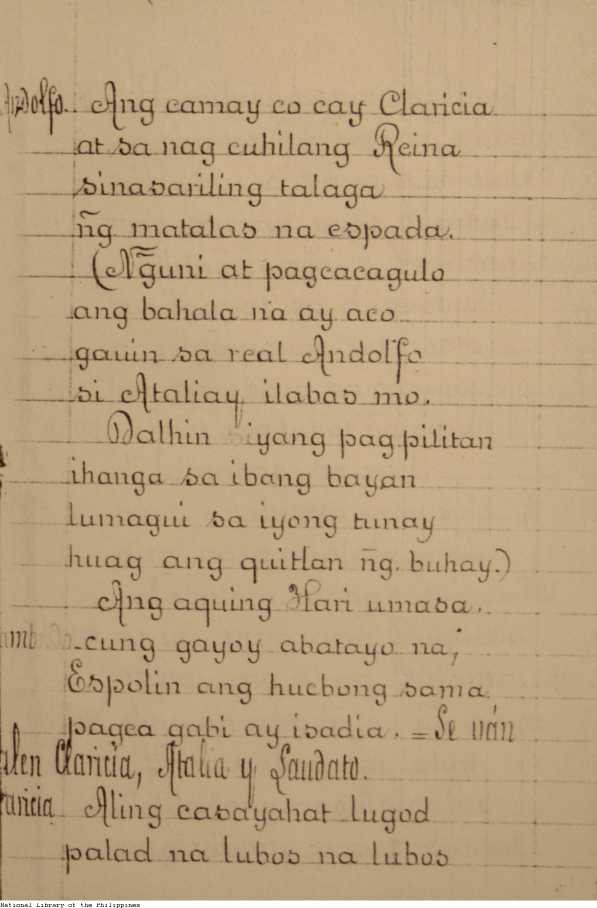 Andolfo. Ang camay co cay Claricia
at sa nag cuhilang Reina
sinasariling talaga
ñg matalas na espada.
(Ng̃uni at pagcacagulo
ang bahala na ay aco
gauin sa real Andolfo
si Ataliay ilabas mo.
Dalhin siyang pagpilitan
ihanga sa ibang bayan
lumagui sa iyong tunay
huag ang quitlan ñg. buhay.)
Ang aquing Hari umasa.
cung gayoy abatayo na;
Espolin ang hucbong sama
pagca gabi ay isadia. = Se ván
Claricia, Atalia y Laudato.
Aling casayahat lugod
palad na lubos na lubos
National Library of the Philippines